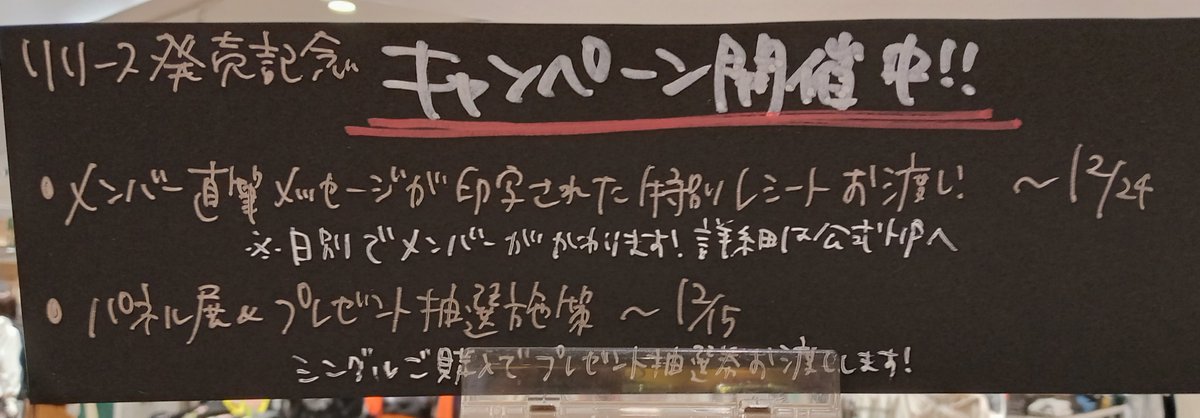 リリース発売記念 キャンペーン開催中!!
・メンバー直筆メッセージが印字された特別レシートお渡し! ～12/24
※日別でメンバーがかわります! 詳細は公式HPへ
・パネル展&プレゼント抽選施策 ～12/15
シングルご購入でプレゼント抽選券お渡しします!